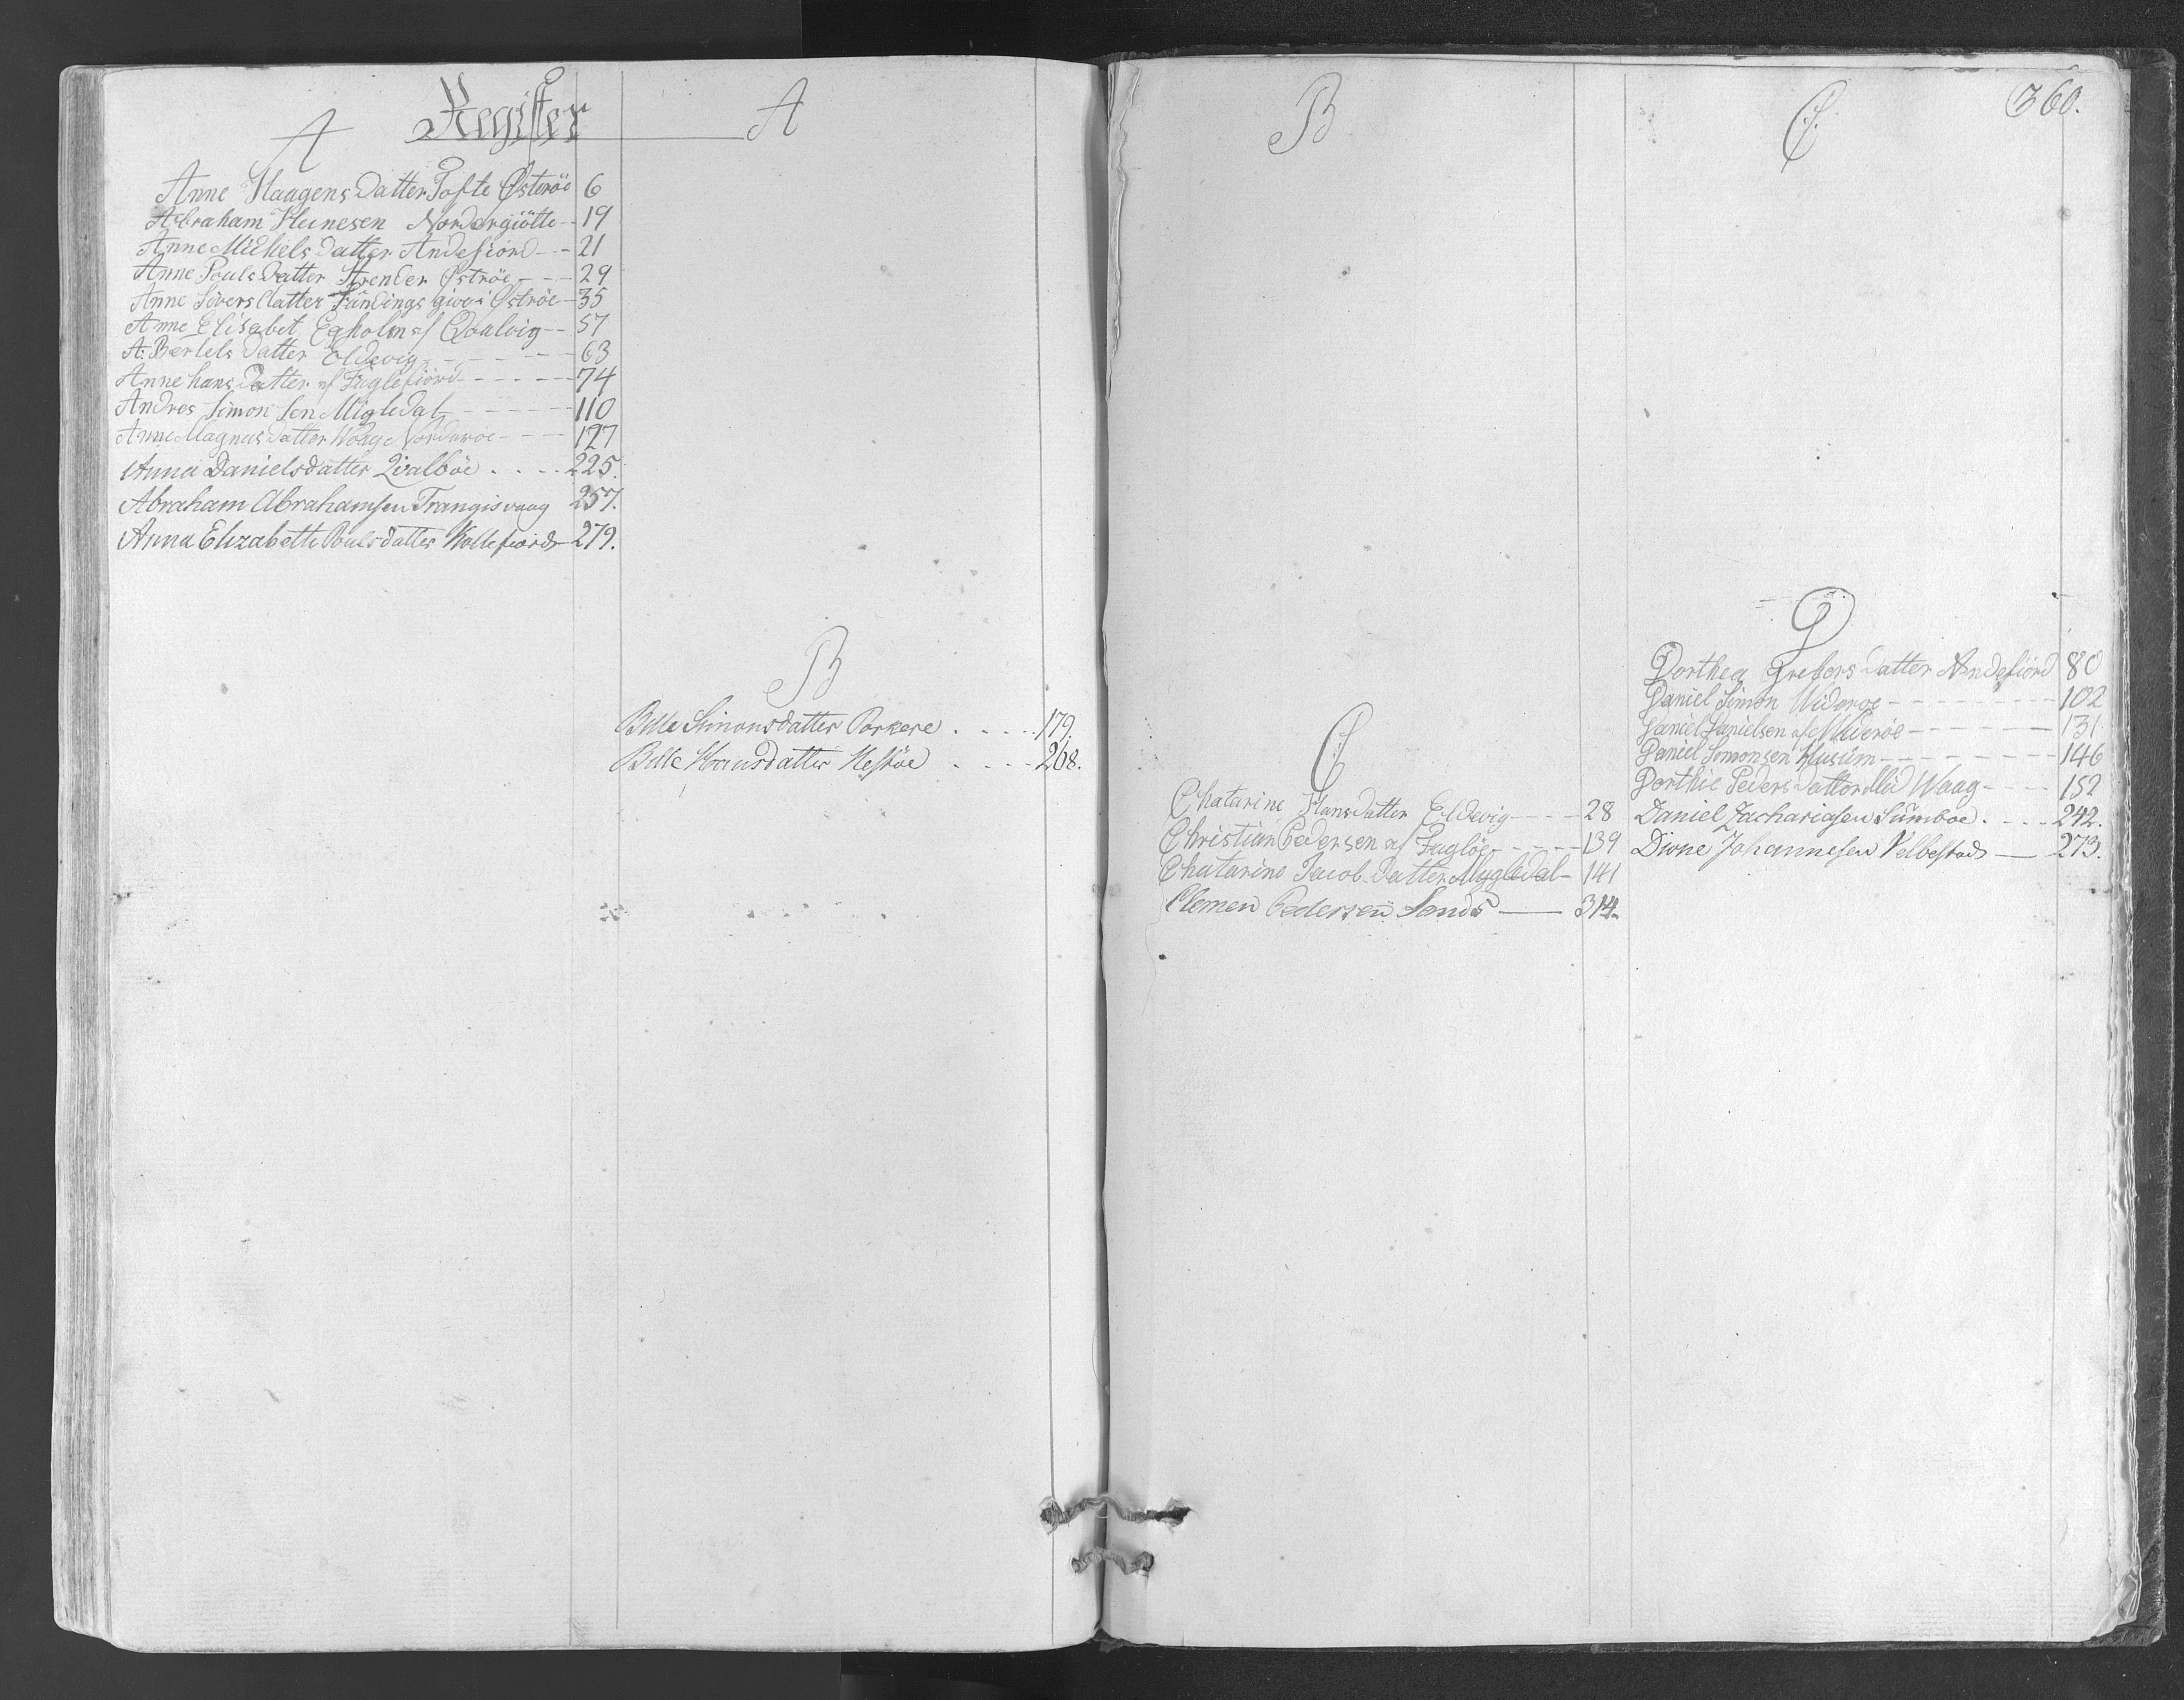 Register
A
A
Anne Haagens Datter Tofte Østeröe 6
Abraham Heinesen Nordergiötte - 19
Anne Michels Datter Andefiord - - 21
Anne Pouls Datter Strender Öströe - - - 29
Anne Sivers Datter Fundings giov i Öströe - 35
Anne Elisabet Egholm af Qvalvig - - 57
A: Bertels Datter Eldevig - - - - - 63
Anne hans Datter af Fuglefiörd - - - - - 74
Andres Simon Sen Migledal - - - - - 110
Anne Magnus Datter Waag Norderöe - - - 127
Anna Danielsdatter Qvalböe . . . . 225.
Abraham Abrahamsen Trangisvaag 257.
Anna Elizabeth Poulsdatter Kollefiord - 279.
B
Bille Simonsdatter Porkere . . . . . 179.
Bille Hansdatter Hestöe . . . . 268.
B
C
Chatarine Hansdatter Eldevig - - - - 28
Christian Pedersen af Fuglöe - - - - 139
Chatarine Jacob Datter Mygledal - 141
Clemen Pedersen Sand - 314.
C
360.
D
Dorthea Datter Andefiörd 80
Daniel Simon Wideröe - - - - - - - - 102
Daniel Danielsen af Wideröe - - - - - - 131
Daniel Simonsen Husum - - - - - - - 146
Dorthie Peders Datter Waag - - - - 152
Daniel Zachariasen Sumboe . . . . 242.
Dione Johannesen Velbestad - 273.